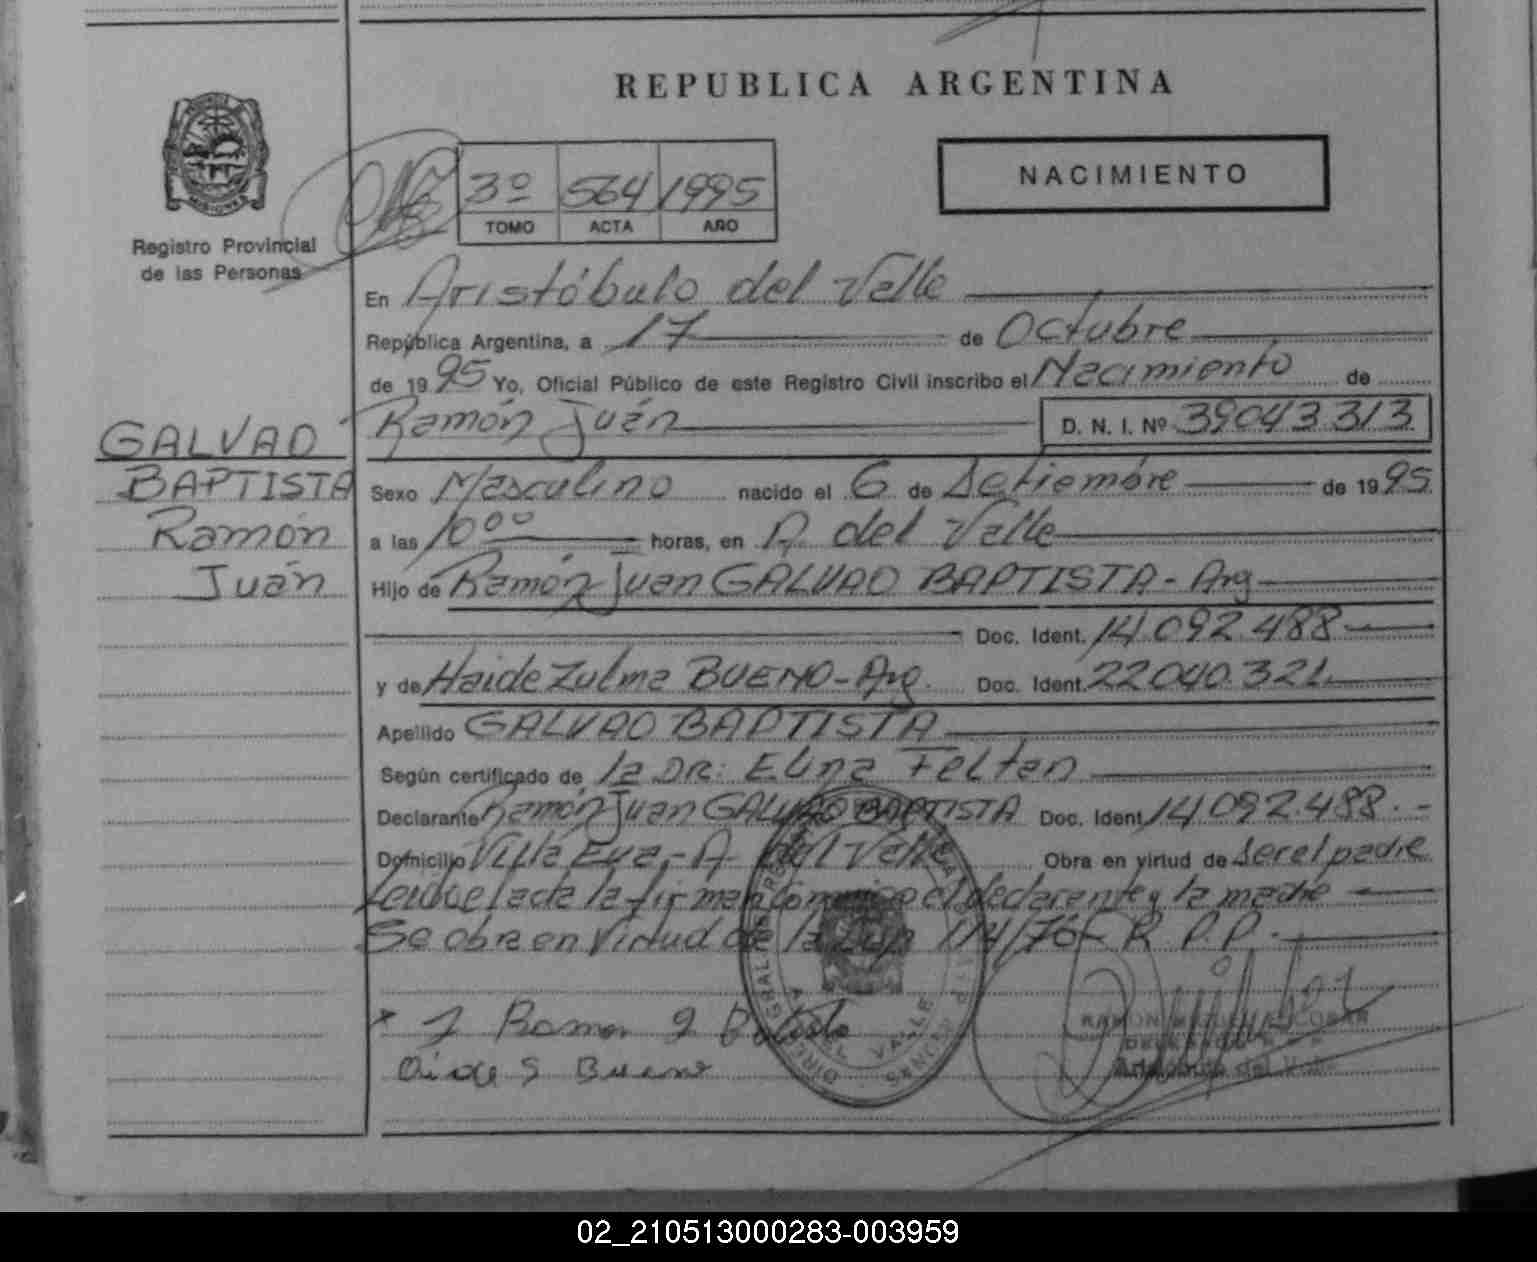 REPUBLICA ARGENTINA
MISIONES
Registro Provincial
de las Personas
3º 564 1995
TOMO ACTA AÑO
NACIMIENTO
En Aristóbulo del Valle
República Argentina, a 17 de Octubre
de 1995 Yo, Oficial Público de este Registro Civil inscribo el Nacimiento de
Ramón Juán D. N. I. Nº 39043313
GALVAO
BAPTISTA
Ramón
Juán
Sexo Masculino nacido el 6 de Setiembre de 1995
a las 10 00 horas, en A. del Valle
Hijo de Ramón Juan GALVAO BAPTISTA - Arg
Doc. Ident. 14.092.488
y de Haide Zulma BUENO - Arg. Doc. Ident. 22.040.321
Apellido GALVAO BAPTISTA
Según certificado de la DR: Elina Feltan
Declarante Ramón Juan GALVAO BAPTISTA Doc. Ident. 14.092.488.-
Domicilio Villa Eva - A. del Valle Obra en virtud de ser el padre
Leidoe lacta la firman conmigo el declarente y la madre
Se obra en Virtud de la Ley 114/76 R. P. P.
Ramon
Bueno
RAMON MIGUEL ESCOBAR
Aristóbulo del Valle
02_210513000283-003959